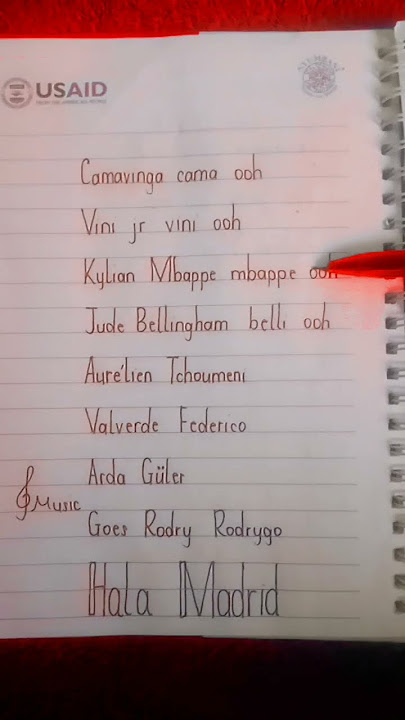 USAID
FROM THE AMERICAN PEOPLE
Camavinga cama ooh
Vini jr vini ooh
Kylian Mbappe mbappe ooh
Jude Bellingham belli ooh
Aure'lien Tchoumeni
Valverde Federico
Arda Güler
Music
Goes Rodry Rodrygo
Hala Madrid